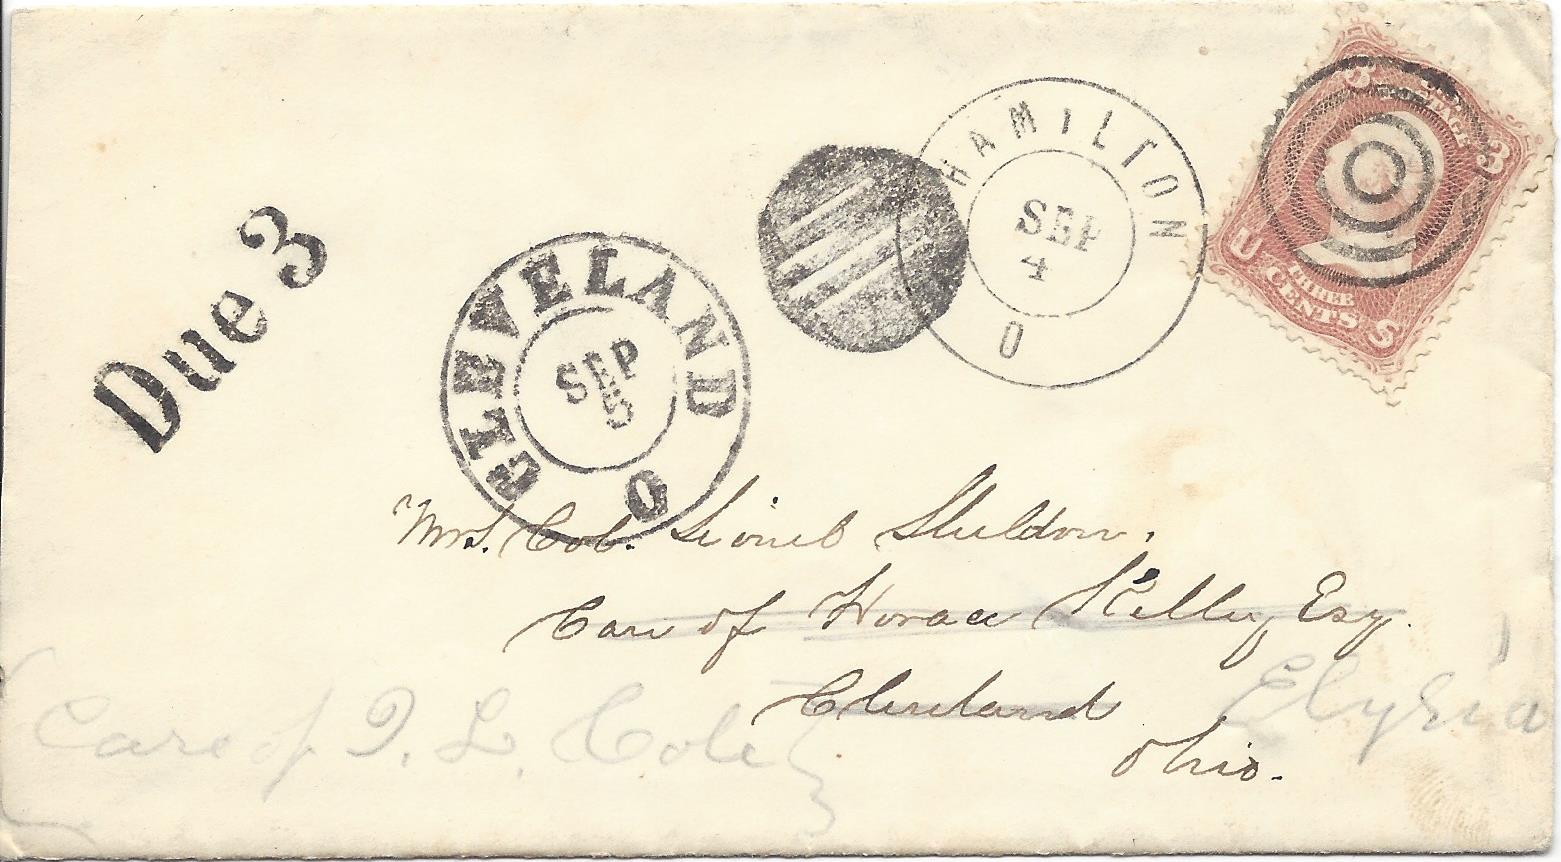 Due 3
CLEVELAND
SEP
5
O
HAMILTON
SEP
4
O
3 3
U S
THREE
CENTS
POSTAGE
Mrs. Col. Lionel Sheldon.
Care of Horace Kelly, Esq.
Cleveland
Ohio.
Elyria
Care of T. L. Cole